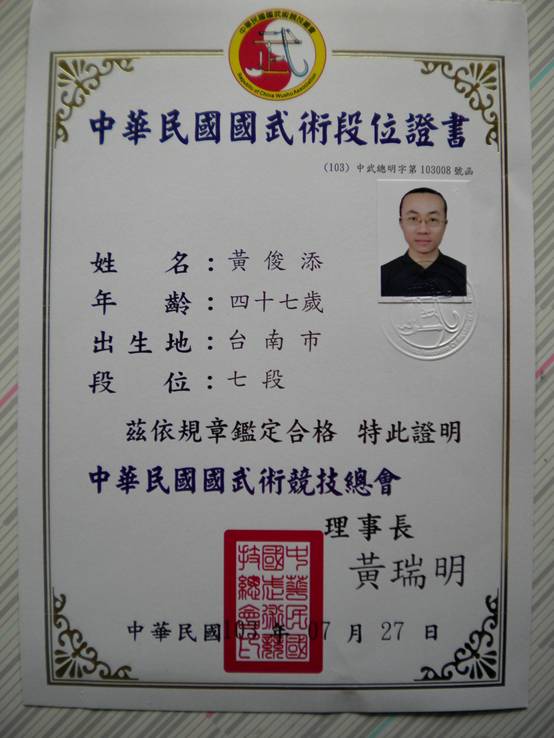 中華民國國武術競技總會
武
Republic of China Wushu Association
中華民國國武術段位證書
(103) 中武總明字第 103008 號函
姓 名：黃俊添
年 齡：四十七歲
出生地：台南市
段 位：七段
茲依規章鑑定合格 特此證明
中華民國國武術競技總會
理事長
黃瑞明
中華民國
國武術競
技總會印
中華民國103 年 07 月 27 日